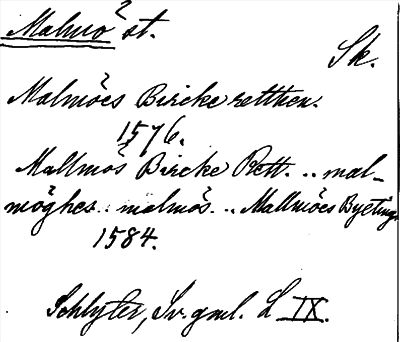 Malmö st.
Sk.
Malmöes Bircke retthen.
1576.
Mallmös Bircke Rett. .. mal-
möghes : malmös. .. Mallmöes Byeting
1584.
Schlyter, Sv. gml. L IX.